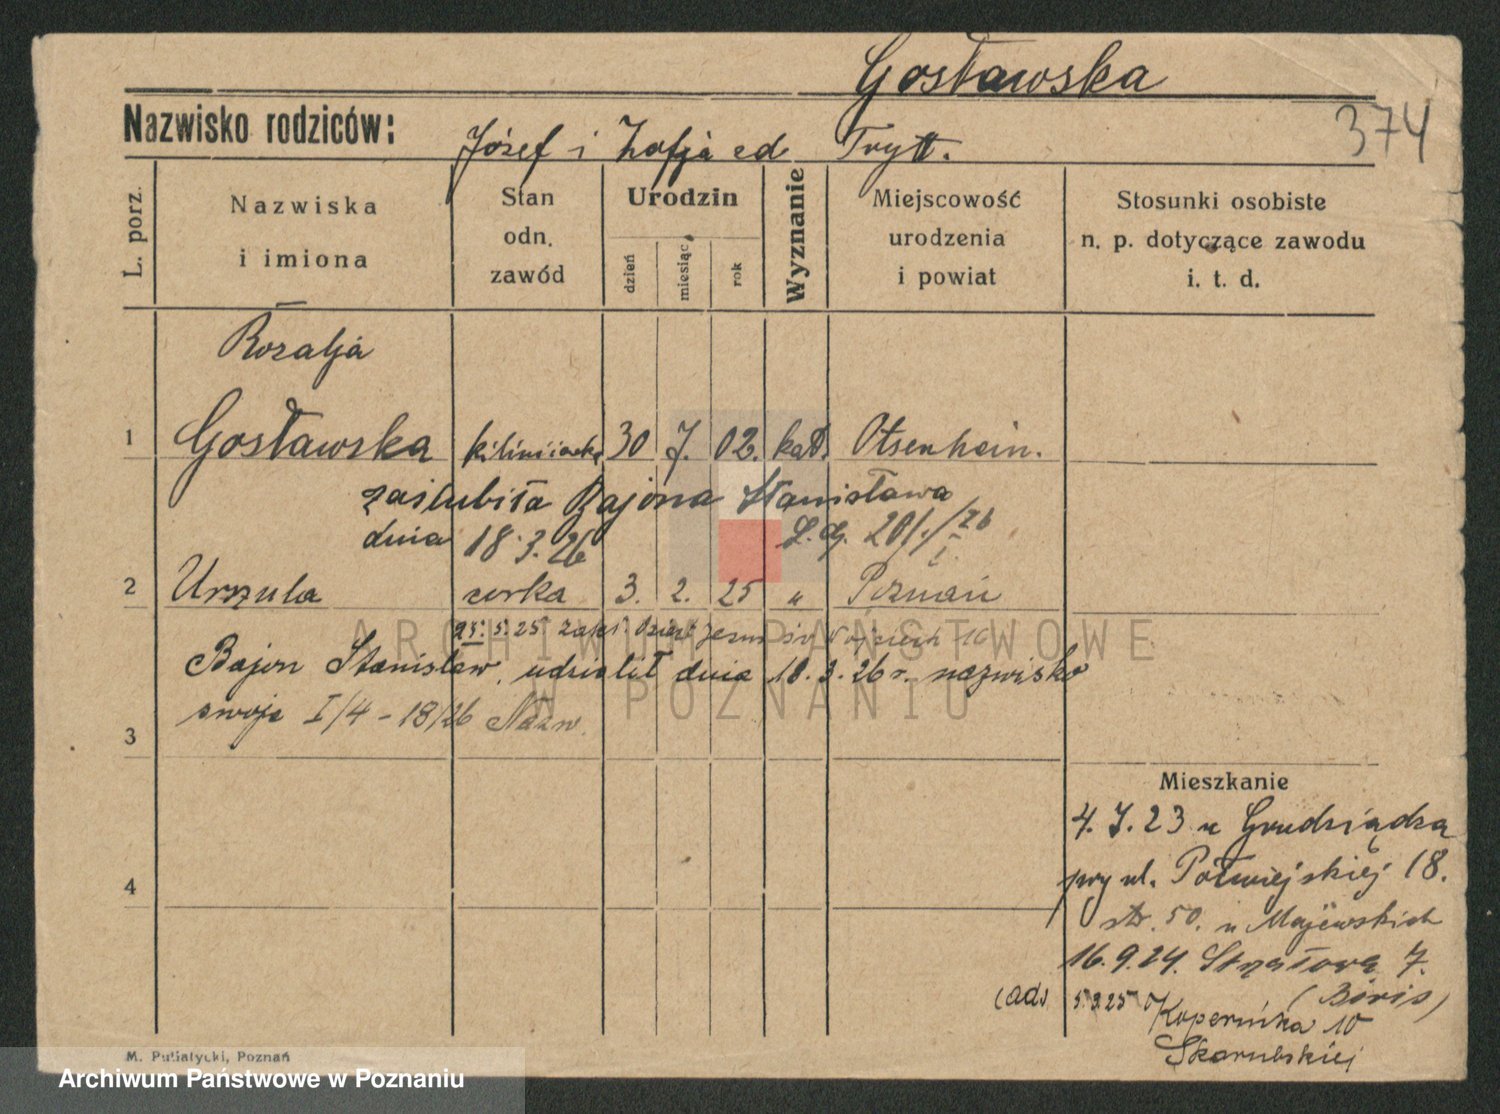 Gosławska
Nazwisko rodziców: Józef i Zofja ed Trytt.
374
L. porz.
Nazwiska
i imiona
Stan
odn.
zawód
Urodzin
dzień
miesiąc
rok
Wyznanie
Miejscowość
urodzenia
i powiat
Stosunki osobiste
n. p. dotyczące zawodu
i. t. d.
Rozalja
1 Gosławska 30 7. 02. kat. Otsenhain.
zaślubiła Bajona Stanisława
dnia 18.3.26
2 Urszula córka 3. 2. 25 " Poznań
25.5.25
Bajon Stanisław, udzielił dnia 18.3.26 r. nazwisko
swoje I/4-18/26 Nazw.
3
4
Mieszkanie
4.7.23 z Grudziądza
przy ul. Półwiejskiej 18.
str. 50. u Majewskich
16.9.24. Strzałowa 7.
(ads
5.3.25
Kopernika 10
Skarubskiej
M. Putiatycki, Poznań
ARCHIWUM PAŃSTWOWE
W POZNANIU
Archiwum Państwowe w Poznaniu